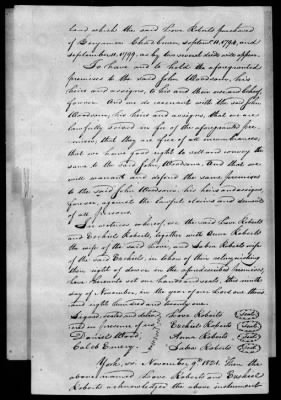 land which the said Love Roberts purchased
of Benjamin Chadbourn september 11, 1794, and
september 11, 1799, as by two several deeds will appear.
To have and to hold the aforegranted
premises to the said John Woodsum, his
heirs and assigns, to his and their use and behoof
forever. And we do covenant with the said John
Woodsum, his heirs and assigns, that we are
lawfully seized in fee of the aforegranted pre-
mises; that they are free of all incumbrances;
that we have good right to sell and convey the
same to the said John Woodsum. And that we
will warrant and defend the same premises
to the said John Woodsum, his heirs and assigns
forever, against the lawful claims and demands
of all persons.
In witness whereof, we the said Love Roberts
and Ezekiel Roberts, together with Anna Roberts
the wife of the said Love, and Sabra Roberts wife
of the said Ezekiel, in token of their relinquishing
their right of dower in the aforedescribed premises,
have hereunto set our hands and seals, this ninth
day of November, in the year of our Lord one thous-
and eight hundred and twenty one.
Signed, sealed and deliver- Love Roberts Seal
ed in presence of us, Ezekiel Roberts Seal
Daniel Wood, Anna Roberts Seal
Caleb Emery. Sabra Roberts Seal
York, ss. November 9th 1821. Then the
above named Love Roberts and Ezekiel
Roberts acknowledged the above instrument